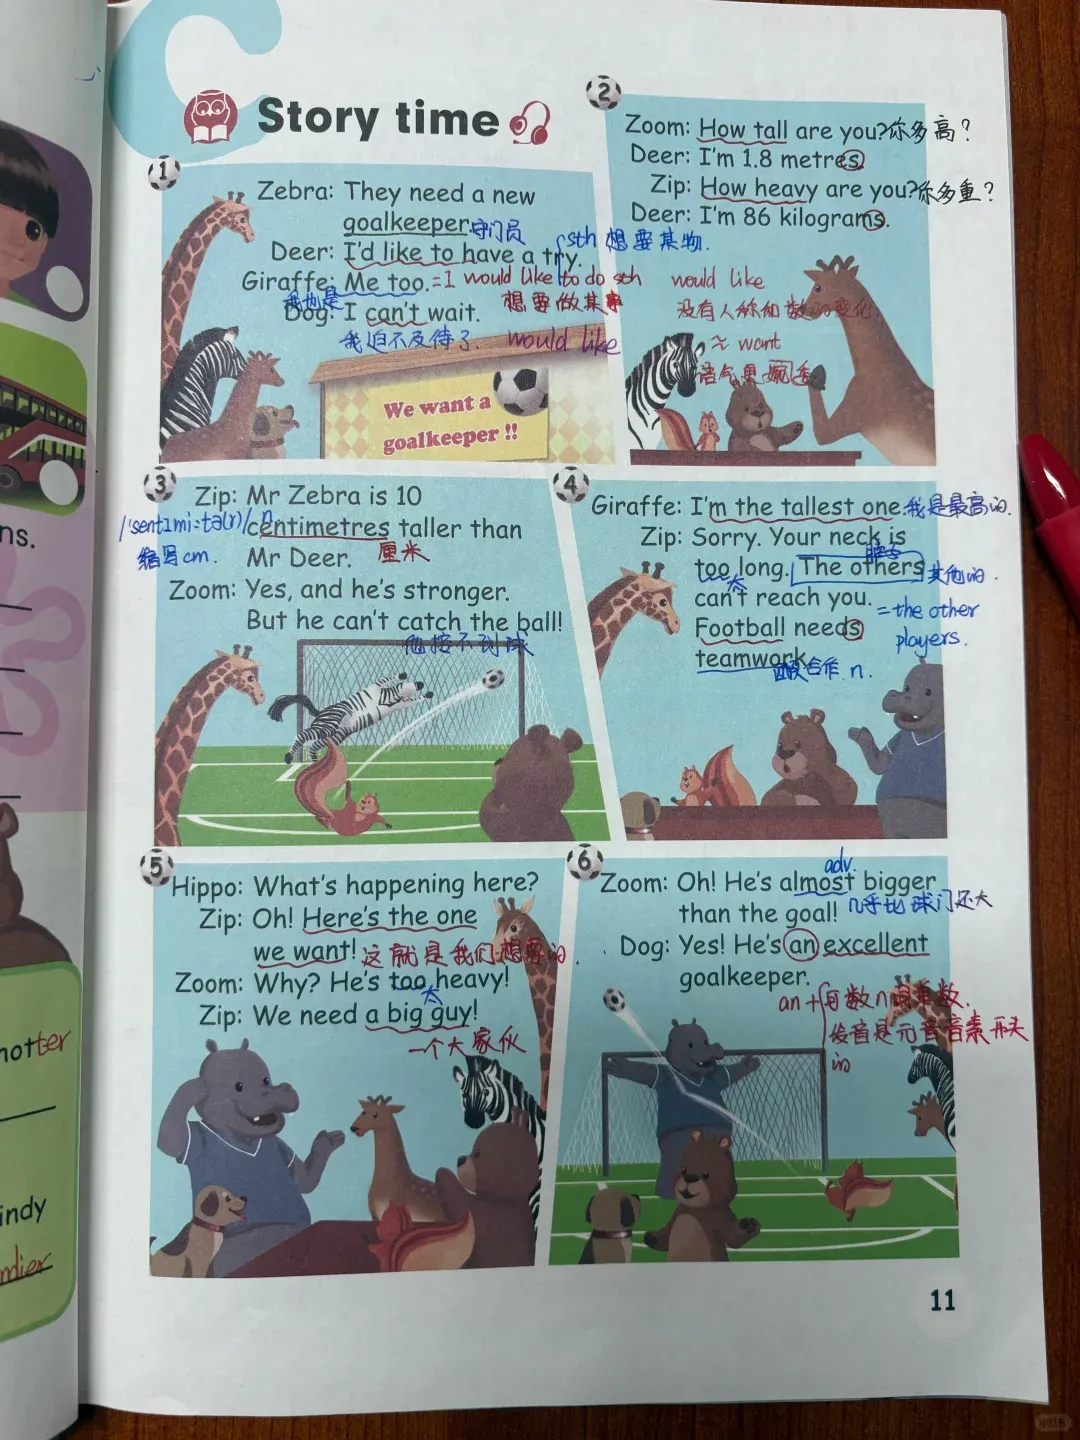 Story time
1
Zebra: They need a new
goalkeeper. 守门员
Deer: I'd like to have a try. sth 想要某物.
Giraffe: Me too. = I would like to do sth
我也是 想要做某事
Dog: I can't wait.
我迫不及待了. would like
We want a
goalkeeper !!
2
Zoom: How tall are you? 你多高?
Deer: I'm 1.8 metres.
Zip: How heavy are you? 你多重?
Deer: I'm 86 kilograms.
would like
没有人称和数的变化.
≈ want
语气更委婉
3
Zip: Mr Zebra is 10
centimetres taller than
/'sentɪmiːtə(r)/ n
缩写cm. Mr Deer. 厘米
Zoom: Yes, and he's stronger.
But he can't catch the ball!
他接不到球
4
Giraffe: I'm the tallest one. 我是最高的.
Zip: Sorry. Your neck is
脖子
too long. The others 其他的.
太
can't reach you. = the other
players.
Football needs
teamwork.
团队合作. n.
5
Hippo: What's happening here?
Zip: Oh! Here's the one
we want! 这就是我们想要的.
Zoom: Why? He's too heavy!
太
Zip: We need a big guy!
一个大家伙
6
adv.
Zoom: Oh! He's almost bigger
than the goal! 几乎比球门还大
Dog: Yes! He's an excellent
goalkeeper.
an + 可数n词单数.
发音是元音音素开头
的
11
ns.
hotter
indy
ndier